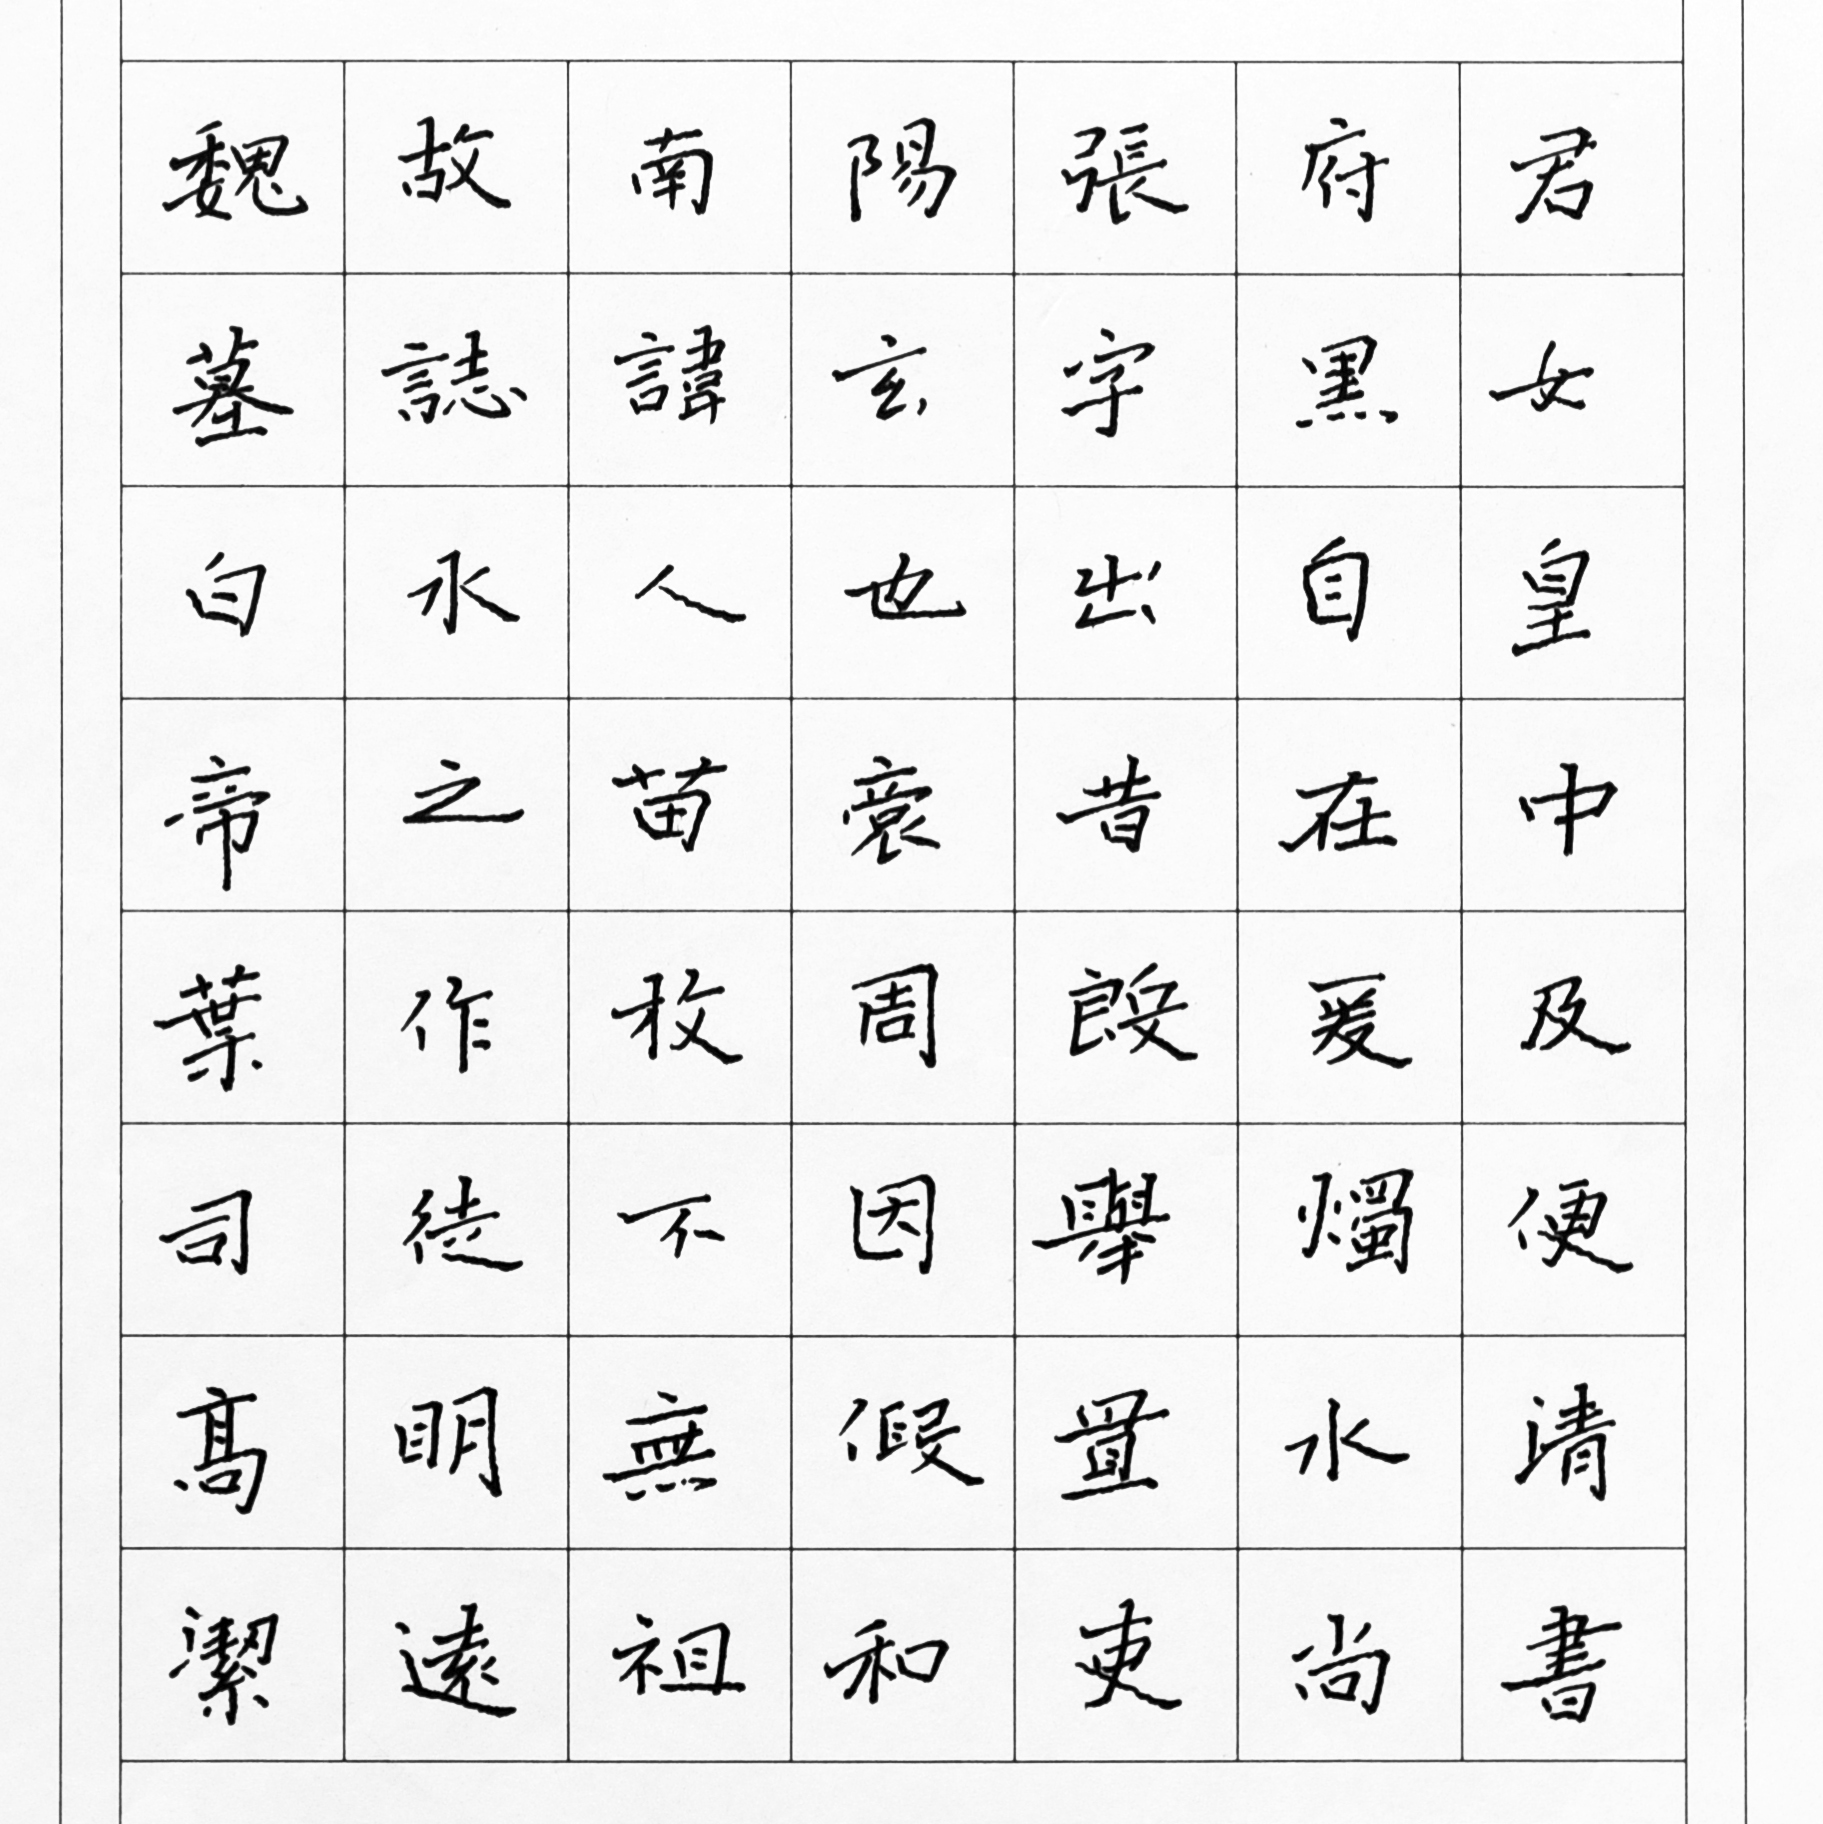 魏故南陽張府君
墓誌諱玄字黑女
白水人也出自皇
帝之苗裔昔在中
葉作牧周殷爰及
司徒不因舉燭便
高明無假置水清
潔遠祖和吏尚書